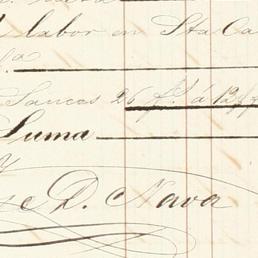 labor en Sta Ca
a
Sauces 26 fs. á 12
Suma
y
e D. Nava